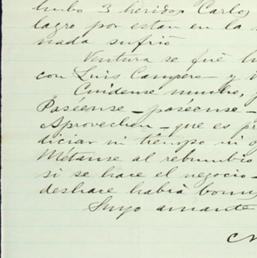 hubo 3 heridos, Carlos
lagro por están en la
nada sufrió
Ventura se fué
con Luis Campero y
Cuídense mucho,
Paséense - paséense -
Aprovechen - que es
diciar ni tiempo ni
Métanse al rebumbio
si se hace el negocio -
deshace habrá
Suyo amante